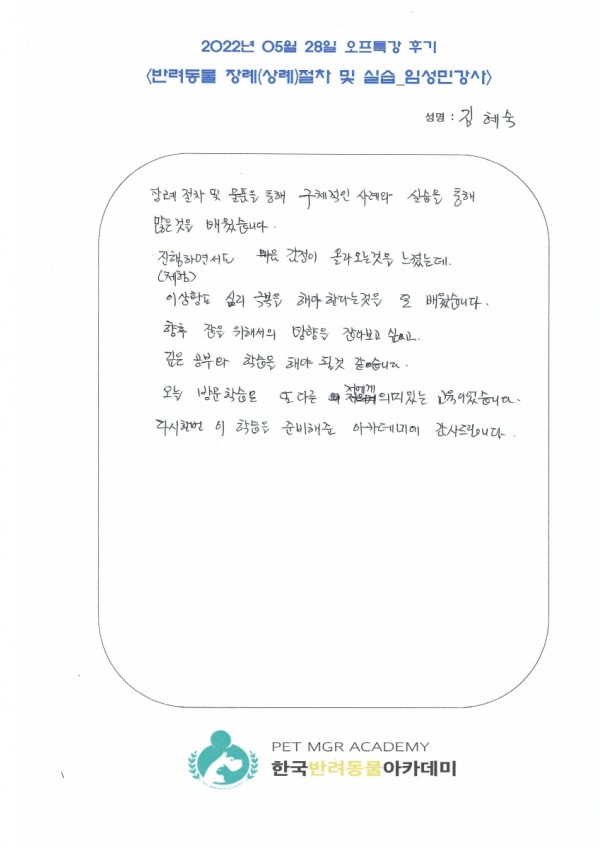 2022년 05월 28일 오프특강 후기
<반려동물 장례(상례)절차 및 실습_임성민강사>
성명 : 김혜숙
장례 절차 및 물품을 통해 구체적인 사례와 실습을 통해
많은것을 배웠습니다.
진행하면서도 많은 감정이 올라오는것을 느꼈는데.
(체험)
이상황도 심리 극복을 해야한다는것을 또 배웠습니다.
향후 위해서의 방향을 잡아보고 싶고.
깊은 공부와 학습을 해야 될것 같습니다.
오늘 방문학습은 또다른 저에게 의미있는 교육이었습니다.
다시한번 이 학습을 준비해준 아카데미에 감사드립니다.
PET MGR ACADEMY
한국반려동물아카데미